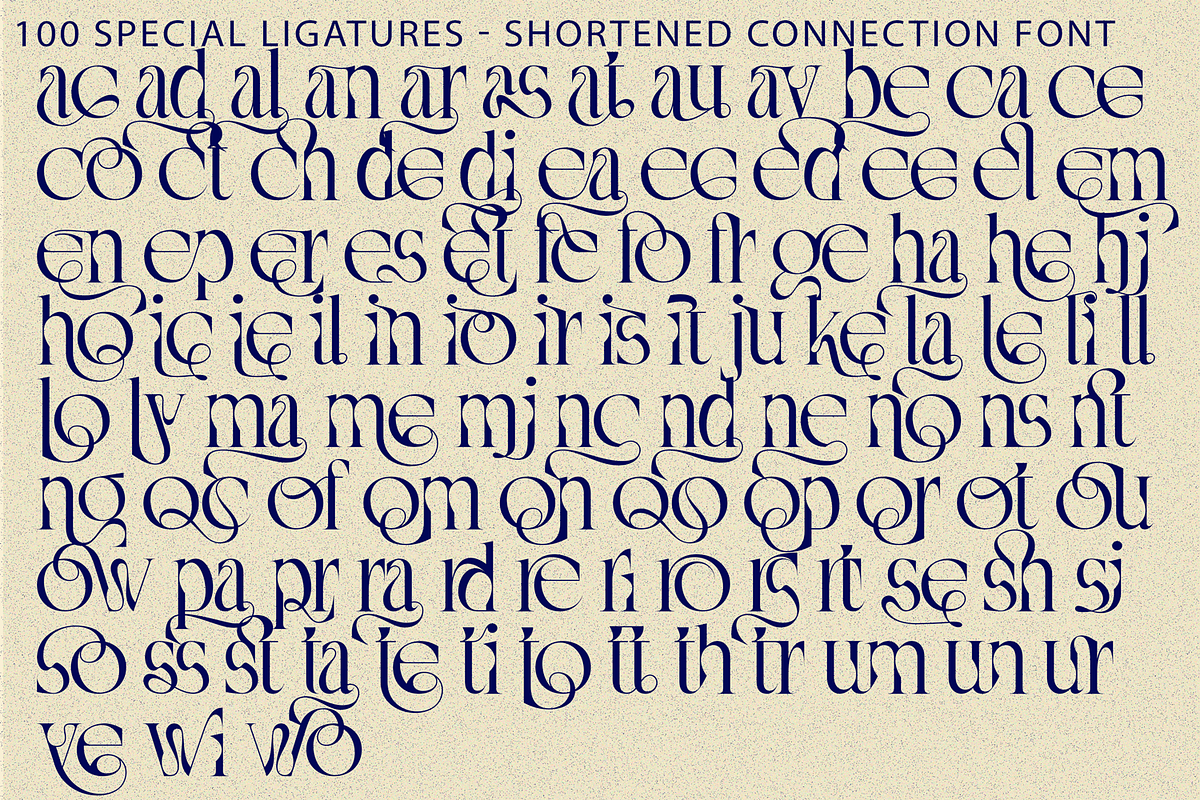 100 SPECIAL LIGATURES - SHORTENED CONNECTION FONT
ac ad al an ar as at au av be ca ce
co ct ch de di ea ec ed ee el em
en ep er es et fe fo fr ge ha he hi
ho ic ie il in io ir is it ju ke la le li ll
lo ly ma me mi nc nd ne no ns nt
ng oc of om on oo op or ot ou
ow pa pr ra rd re ri ro rs rt se sh si
so ss st ta te ti to tt th tr um un ur
ve wi wo